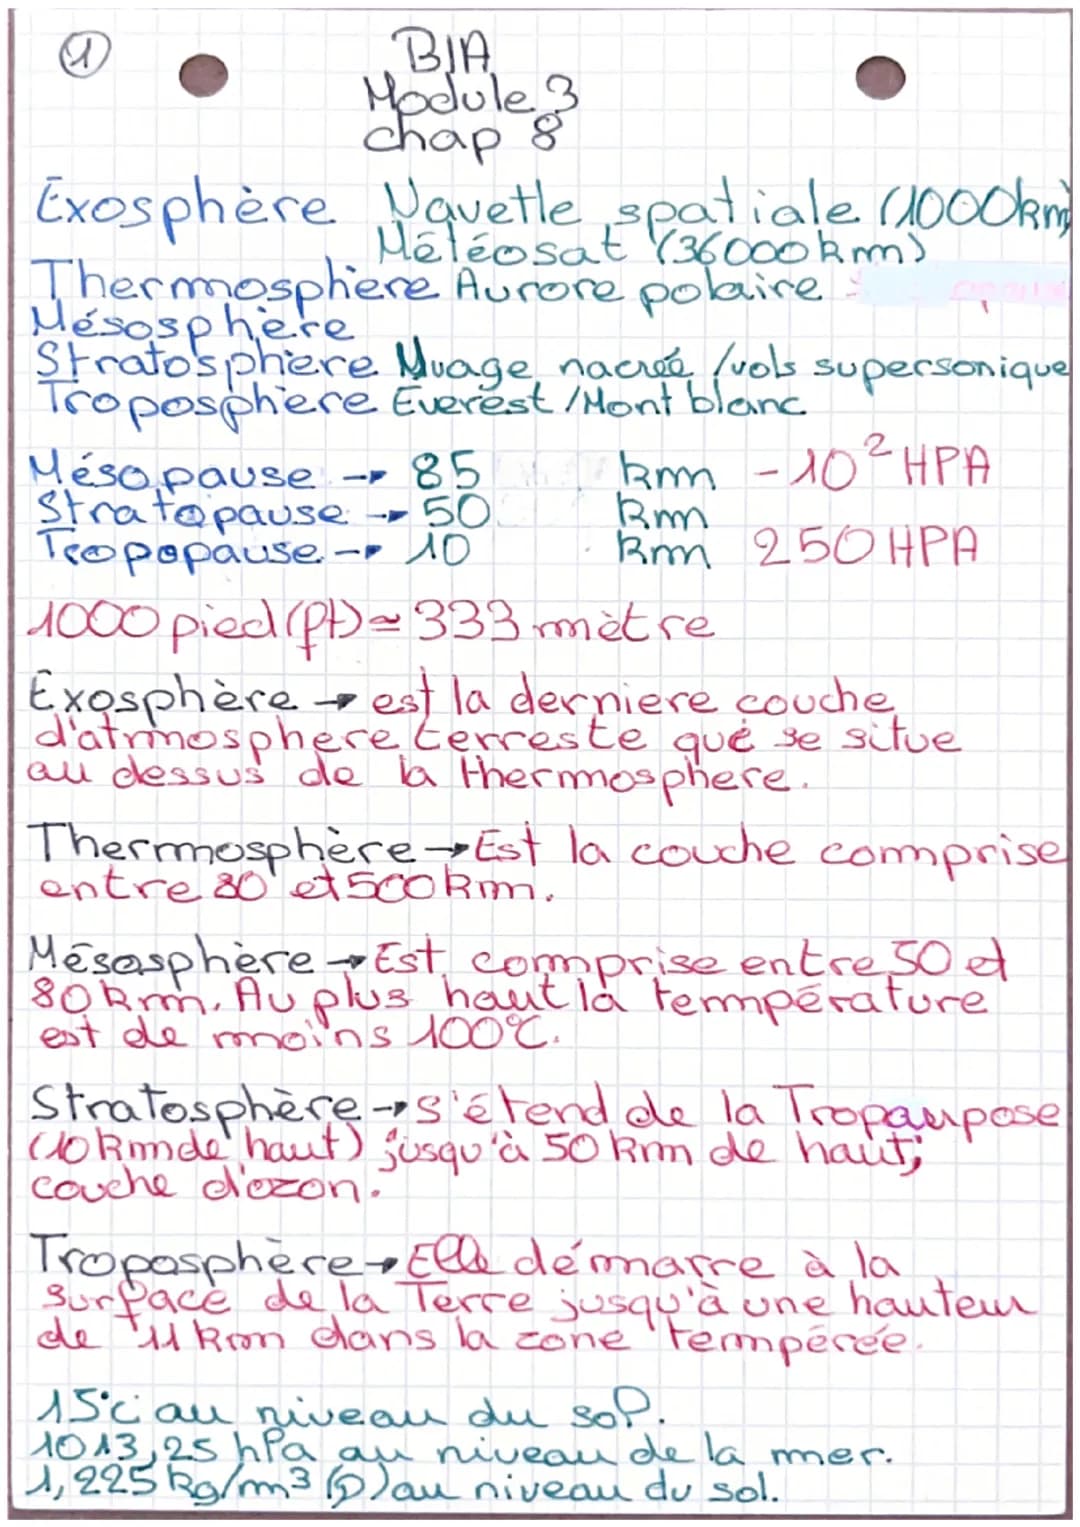 1
BIA
Module 3
chap 8
Exosphère Navette spatiale (1000km)
Météosat (36000km)
Thermosphère Aurore polaire
Mésosphère
Stratosphère Nuage nacréé /vols supersonique
Troposphère Everest /Mont blanc
Mésopause → 85 km - 10² HPA
Stratopause → 50 km
Tropopause → 10 km 250 HPA
1000 pied (ft) ≃ 333 mètre
Exosphère → est la derniere couche
d'atmosphere terreste qué se situe
au dessus de la thermosphere.
Thermosphère → Est la couche comprise
entre 80 et 500 km.
Mésosphère → Est comprise entre 50 et
80 km. Au plus haut la température
est de moins 100°C.
Stratosphère → s'étend de la Tropaupose
(10 km de haut) jusqu'à 50 km de haut;
couche d'ozon.
Troposphère → Elle démarre à la
surface de la Terre jusqu'à une hauteur
de 11 km dans la zone tempérée.
15°c au niveau du sol.
1013,25 hPa au niveau de la mer.
1,225 kg/m³ (ρ) au niveau du sol.